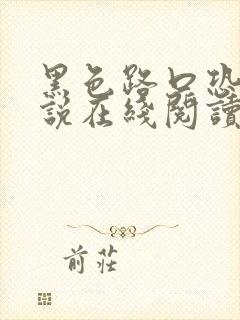 黑色路口恐
說在綫閱讀
前莊